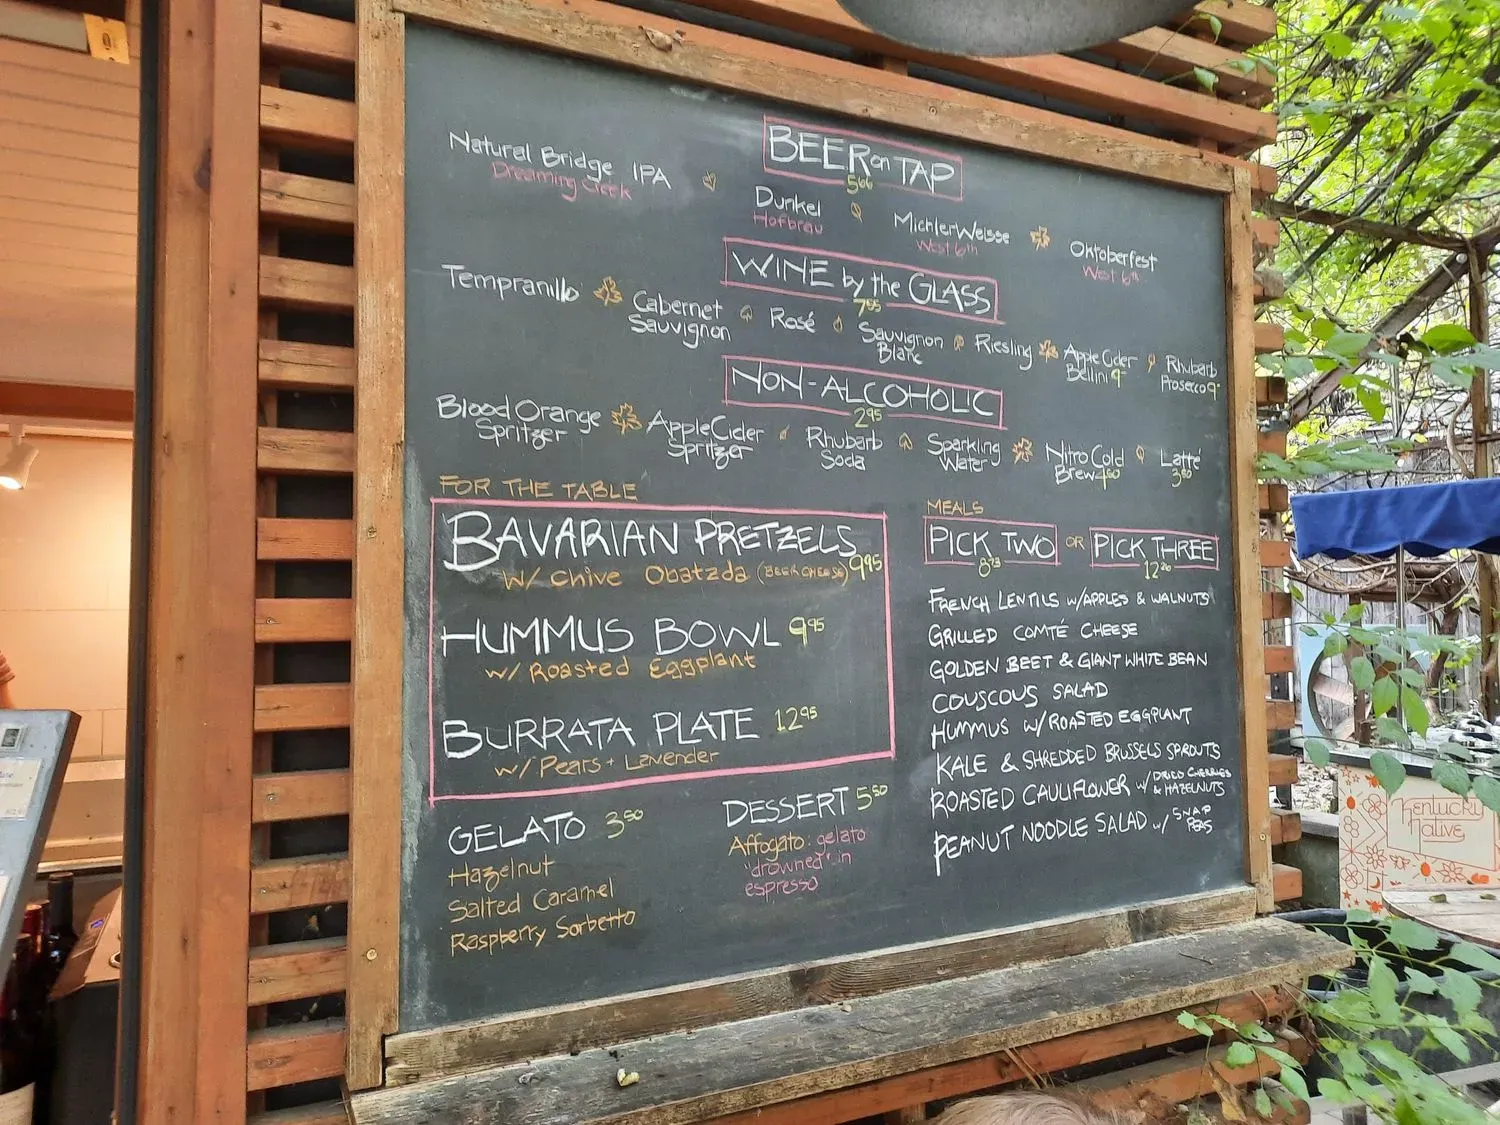 BEER on TAP
5⁶⁶
Natural Bridge IPA
Dreaming Creek
Dunkel
Hofbrau
Michler Weisse
West 6th
Oktoberfest
West 6th
WINE by the GLASS
7⁹⁵
Tempranillo
Cabernet
Sauvignon
Rosé
Sauvignon
Blanc
Riesling
Apple Cider
Bellini 9-
Rhubarb
Prosecco 9-
NON-ALCOHOLIC
2⁹⁵
Blood Orange
Spritzer
Apple Cider
Spritzer
Rhubarb
Soda
Sparkling
Water
Nitro Cold
Brew 4⁵⁰
Latté
3⁵⁰
FOR THE TABLE
BAVARIAN PRETZELS
9⁹⁵
w/ Chive Obatzda (BEER CHEESE)
HUMMUS BOWL 9⁹⁵
w/ Roasted Eggplant
BURRATA PLATE 12⁹⁵
w/ Pears + Lavender
GELATO 3⁵⁰
Hazelnut
Salted Caramel
Raspberry Sorbetto
DESSERT 5⁵⁰
Affogato: gelato
"drowned" in
espresso
MEALS
PICK TWO OR PICK THREE
8⁷³
12²⁶
FRENCH LENTILS W/APPLES & WALNUTS
GRILLED COMTÉ CHEESE
GOLDEN BEET & GIANT WHITE BEAN
COUSCOUS SALAD
HUMMUS W/ROASTED EGGPLANT
KALE & SHREDDED BRUSSELS SPROUTS
ROASTED CAULIFLOWER W/ DRIED CHERRIES
& HAZELNUTS
PEANUT NOODLE SALAD w/ SNAP
PEAS
Kentucky
Native